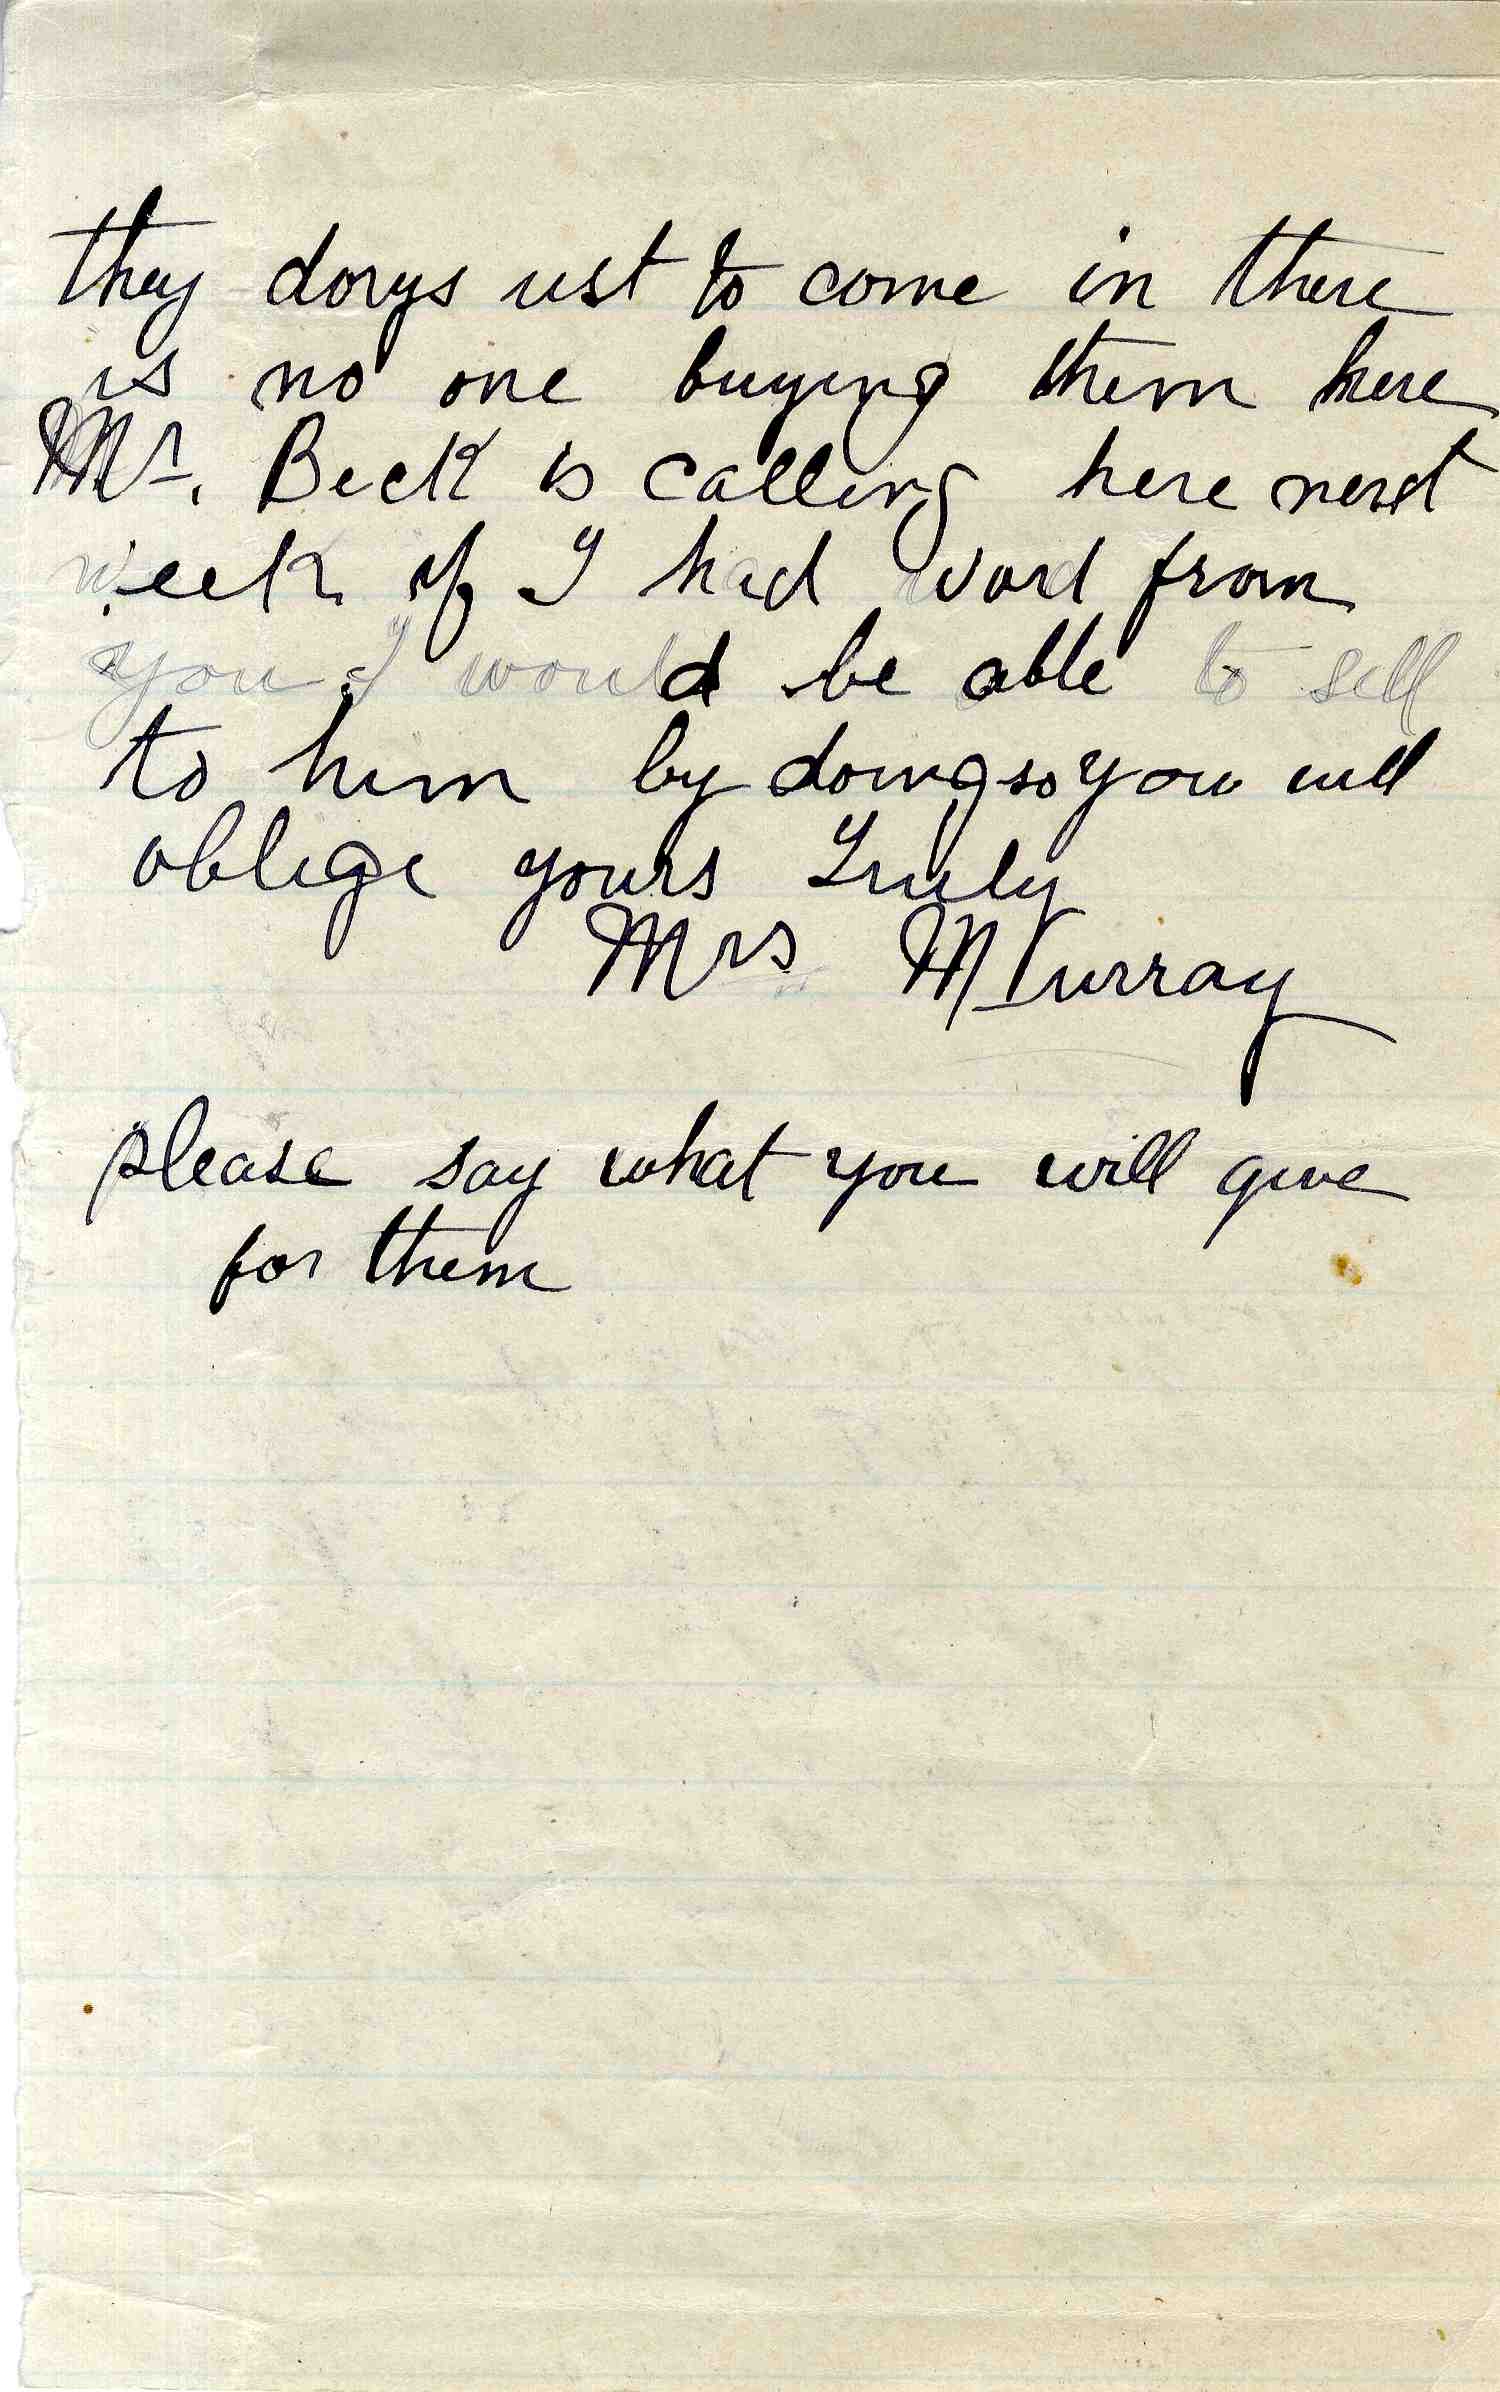 they dorys ust to come in there
is no one buying them here
Mr. Beck is calling here next
week if I had word from
you I would be able to sell
to him by doing so you will
oblige yours Truly
Mrs Murray
please say what you will give
for them